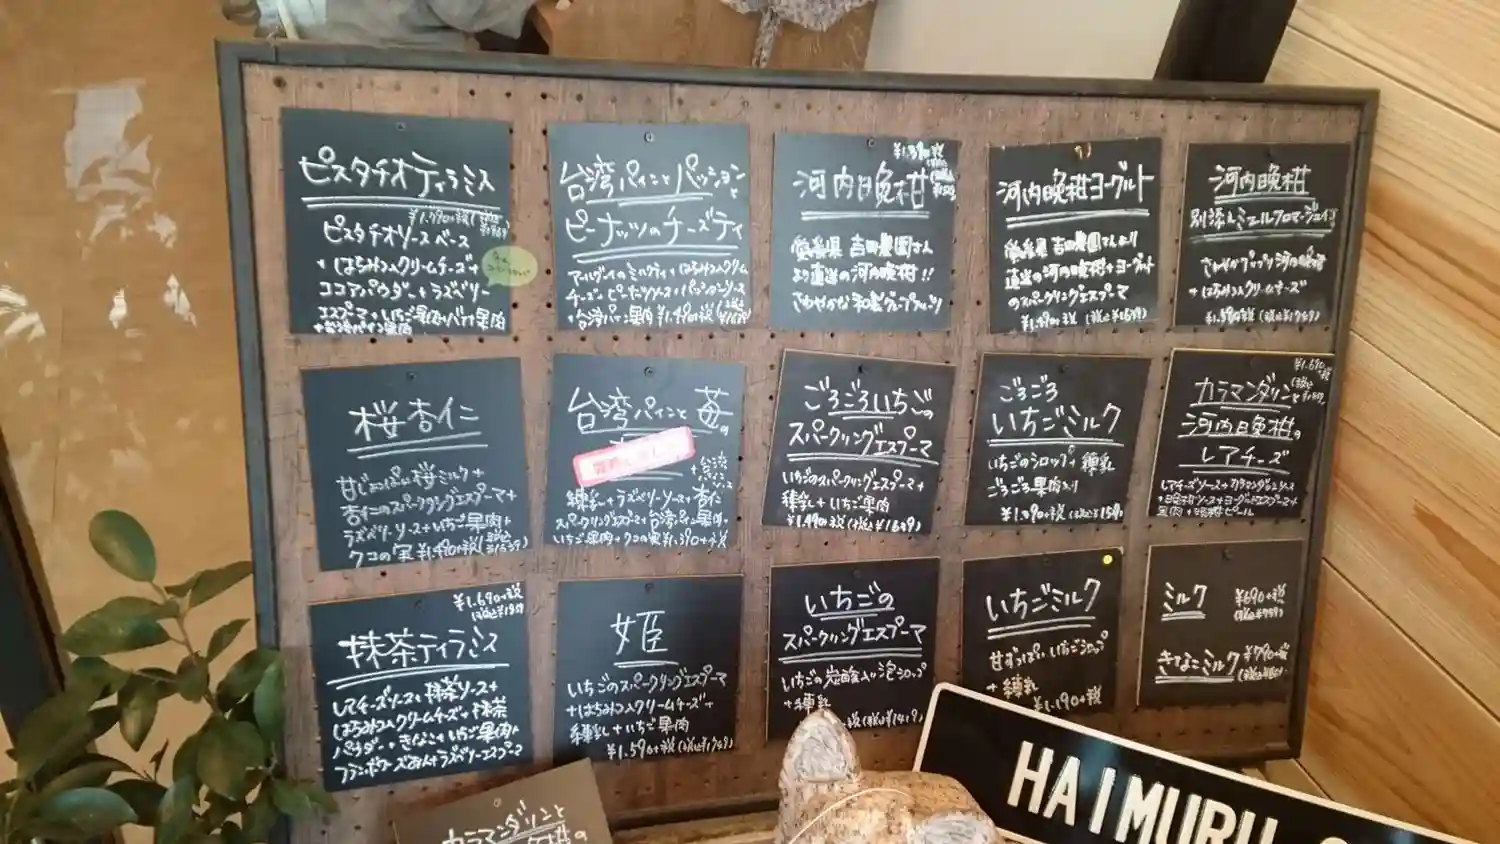 ピスタチオティラミス
¥1,790+税(税込¥1969)
ピスタチオソースベース
+はちみつ入クリームチーズ+
ココアパウダー+ラズベリー
エスプーマ+いちご果肉+バナナ果肉
+台湾パイン果肉
台湾パインとパッションと
ピーナッツのチーズティ
アールグレイのミルクティ+はちみつ入クリーム
チーズ+ピーナツソース+パッションソース
+台湾パイン果肉 ¥1,490+税
河内晩柑
愛媛県 吉田農園さん
より直送の河内晩柑!!
さわやかな和製グレープフルーツ
河内晩柑ヨーグルト
愛媛県 吉田農園さんより
直送の河内晩柑+ヨーグルト
のスパークリングエスプーマ
¥1,490+税 (税込¥1639)
河内晩柑
さわやかプップツ河内晩柑
+はちみつ入クリームチーズ
¥1,590+税 (税込¥1749)
桜杏仁
甘じょっぱい桜ミルク+
杏仁のスパークリングエスプーマ+
ラズベリーソース+いちご果肉+
クコの実 ¥1,490+税(税込¥1639)
台湾パインと苺の
練乳+ラズベリーソース+杏仁
スパークリングエスプーマ+台湾パイン果肉+
いちご果肉+クコの実 ¥1,390+税
ごろごろいちごの
スパークリングエスプーマ
いちごのスパークリングエスプーマ+
練乳+いちご果肉
¥1,490+税(税込¥1639)
ごろごろ
いちごミルク
いちごのシロップ+練乳
ごろごろ果肉入り
¥1,390+税
¥1,690
+税
カラマンダリンと
河内晩柑の
レアチーズ
レアチーズソース+カラマンダリンソース
+晩柑ソース+ヨーグルトエスプーマ+
果肉+晩柑ピール
¥1,690+税
抹茶ティラミス
レアチーズソース+抹茶ソース+
はちみつ入クリームチーズ+抹茶
パウダー+きなこ+いちご果肉+
フランボワーズあん+ラズベリーエスプーマ
姫
いちごのスパークリングエスプーマ
+はちみつ入クリームチーズ+
練乳+いちご果肉
¥1,590+税(税込¥1749)
いちごの
スパークリングエスプーマ
いちごの炭酸入り泡シロップ
+練乳
+税(税込¥1419)
いちごミルク
甘ずっぱいいちごシロップ
+練乳
¥1,190+税
ミルク ¥690+税
(税込¥759)
きなこミルク ¥790+税
カラマンダリンと
HAIMURU